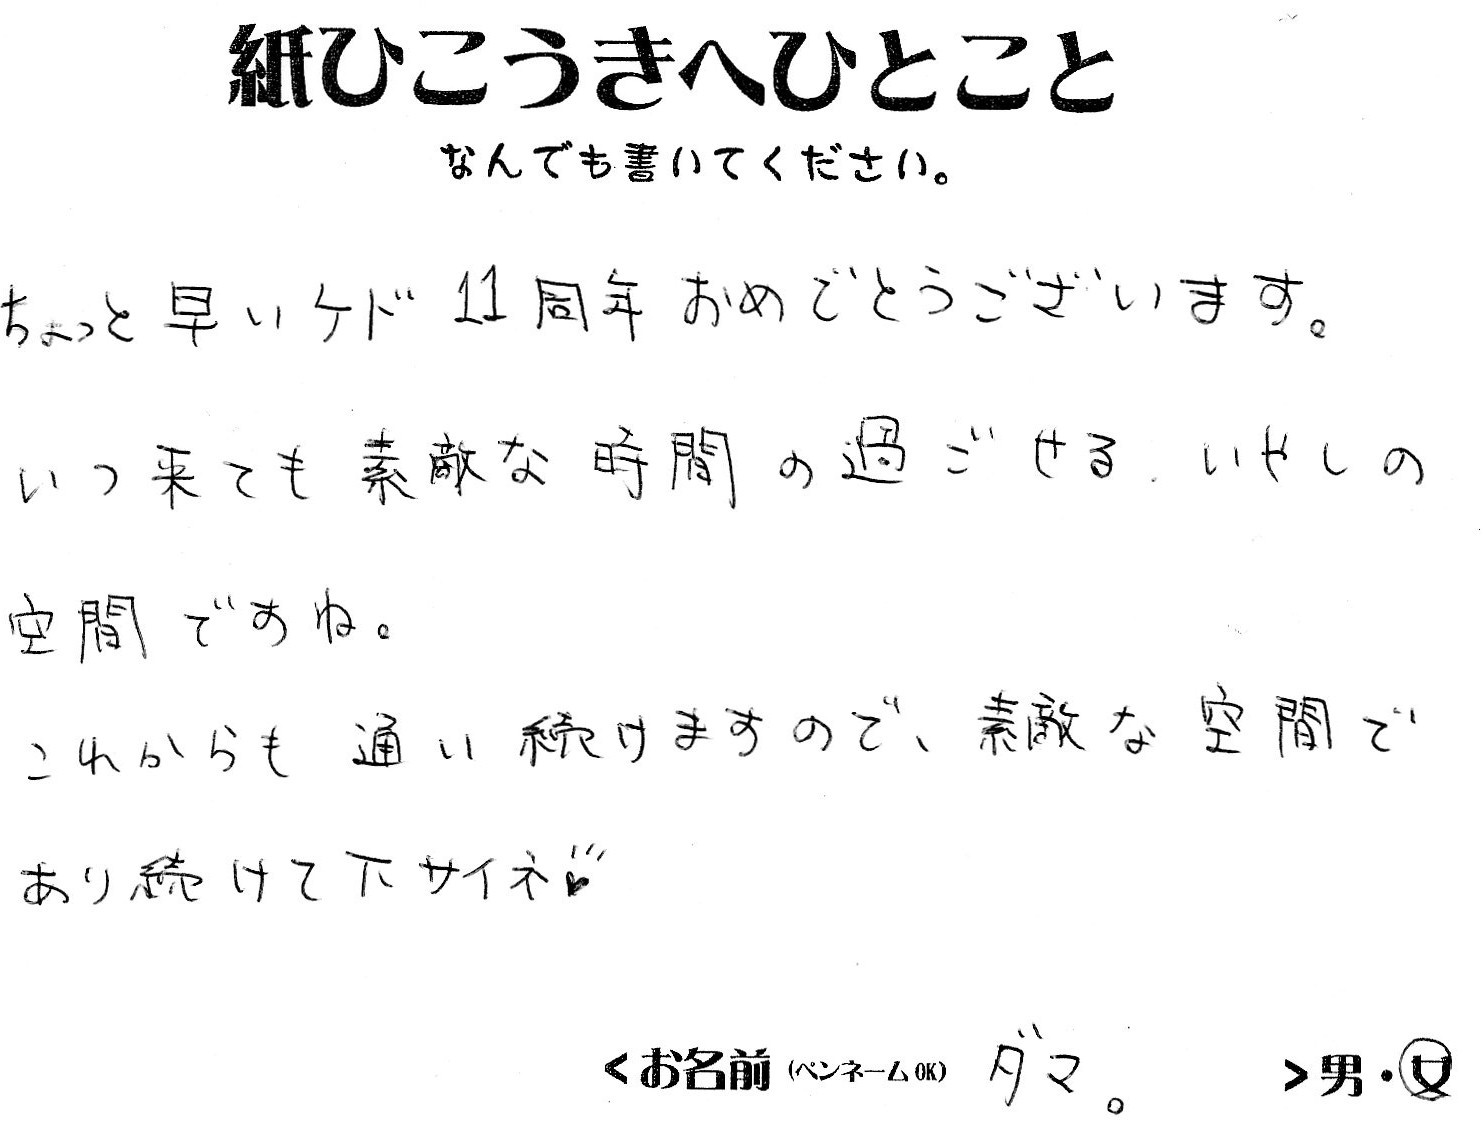 紙ひこうきへひとこと
なんでも書いてください。
ちょっと早いケド 11周年 おめでとうございます。
いつ来ても素敵な時間の過ごせる、いやしの
空間ですね。
これからも通い続けますので、素敵な空間で
あり続けて下サイネ♥
<お名前(ペンネームOK) ダマ。 >男・女